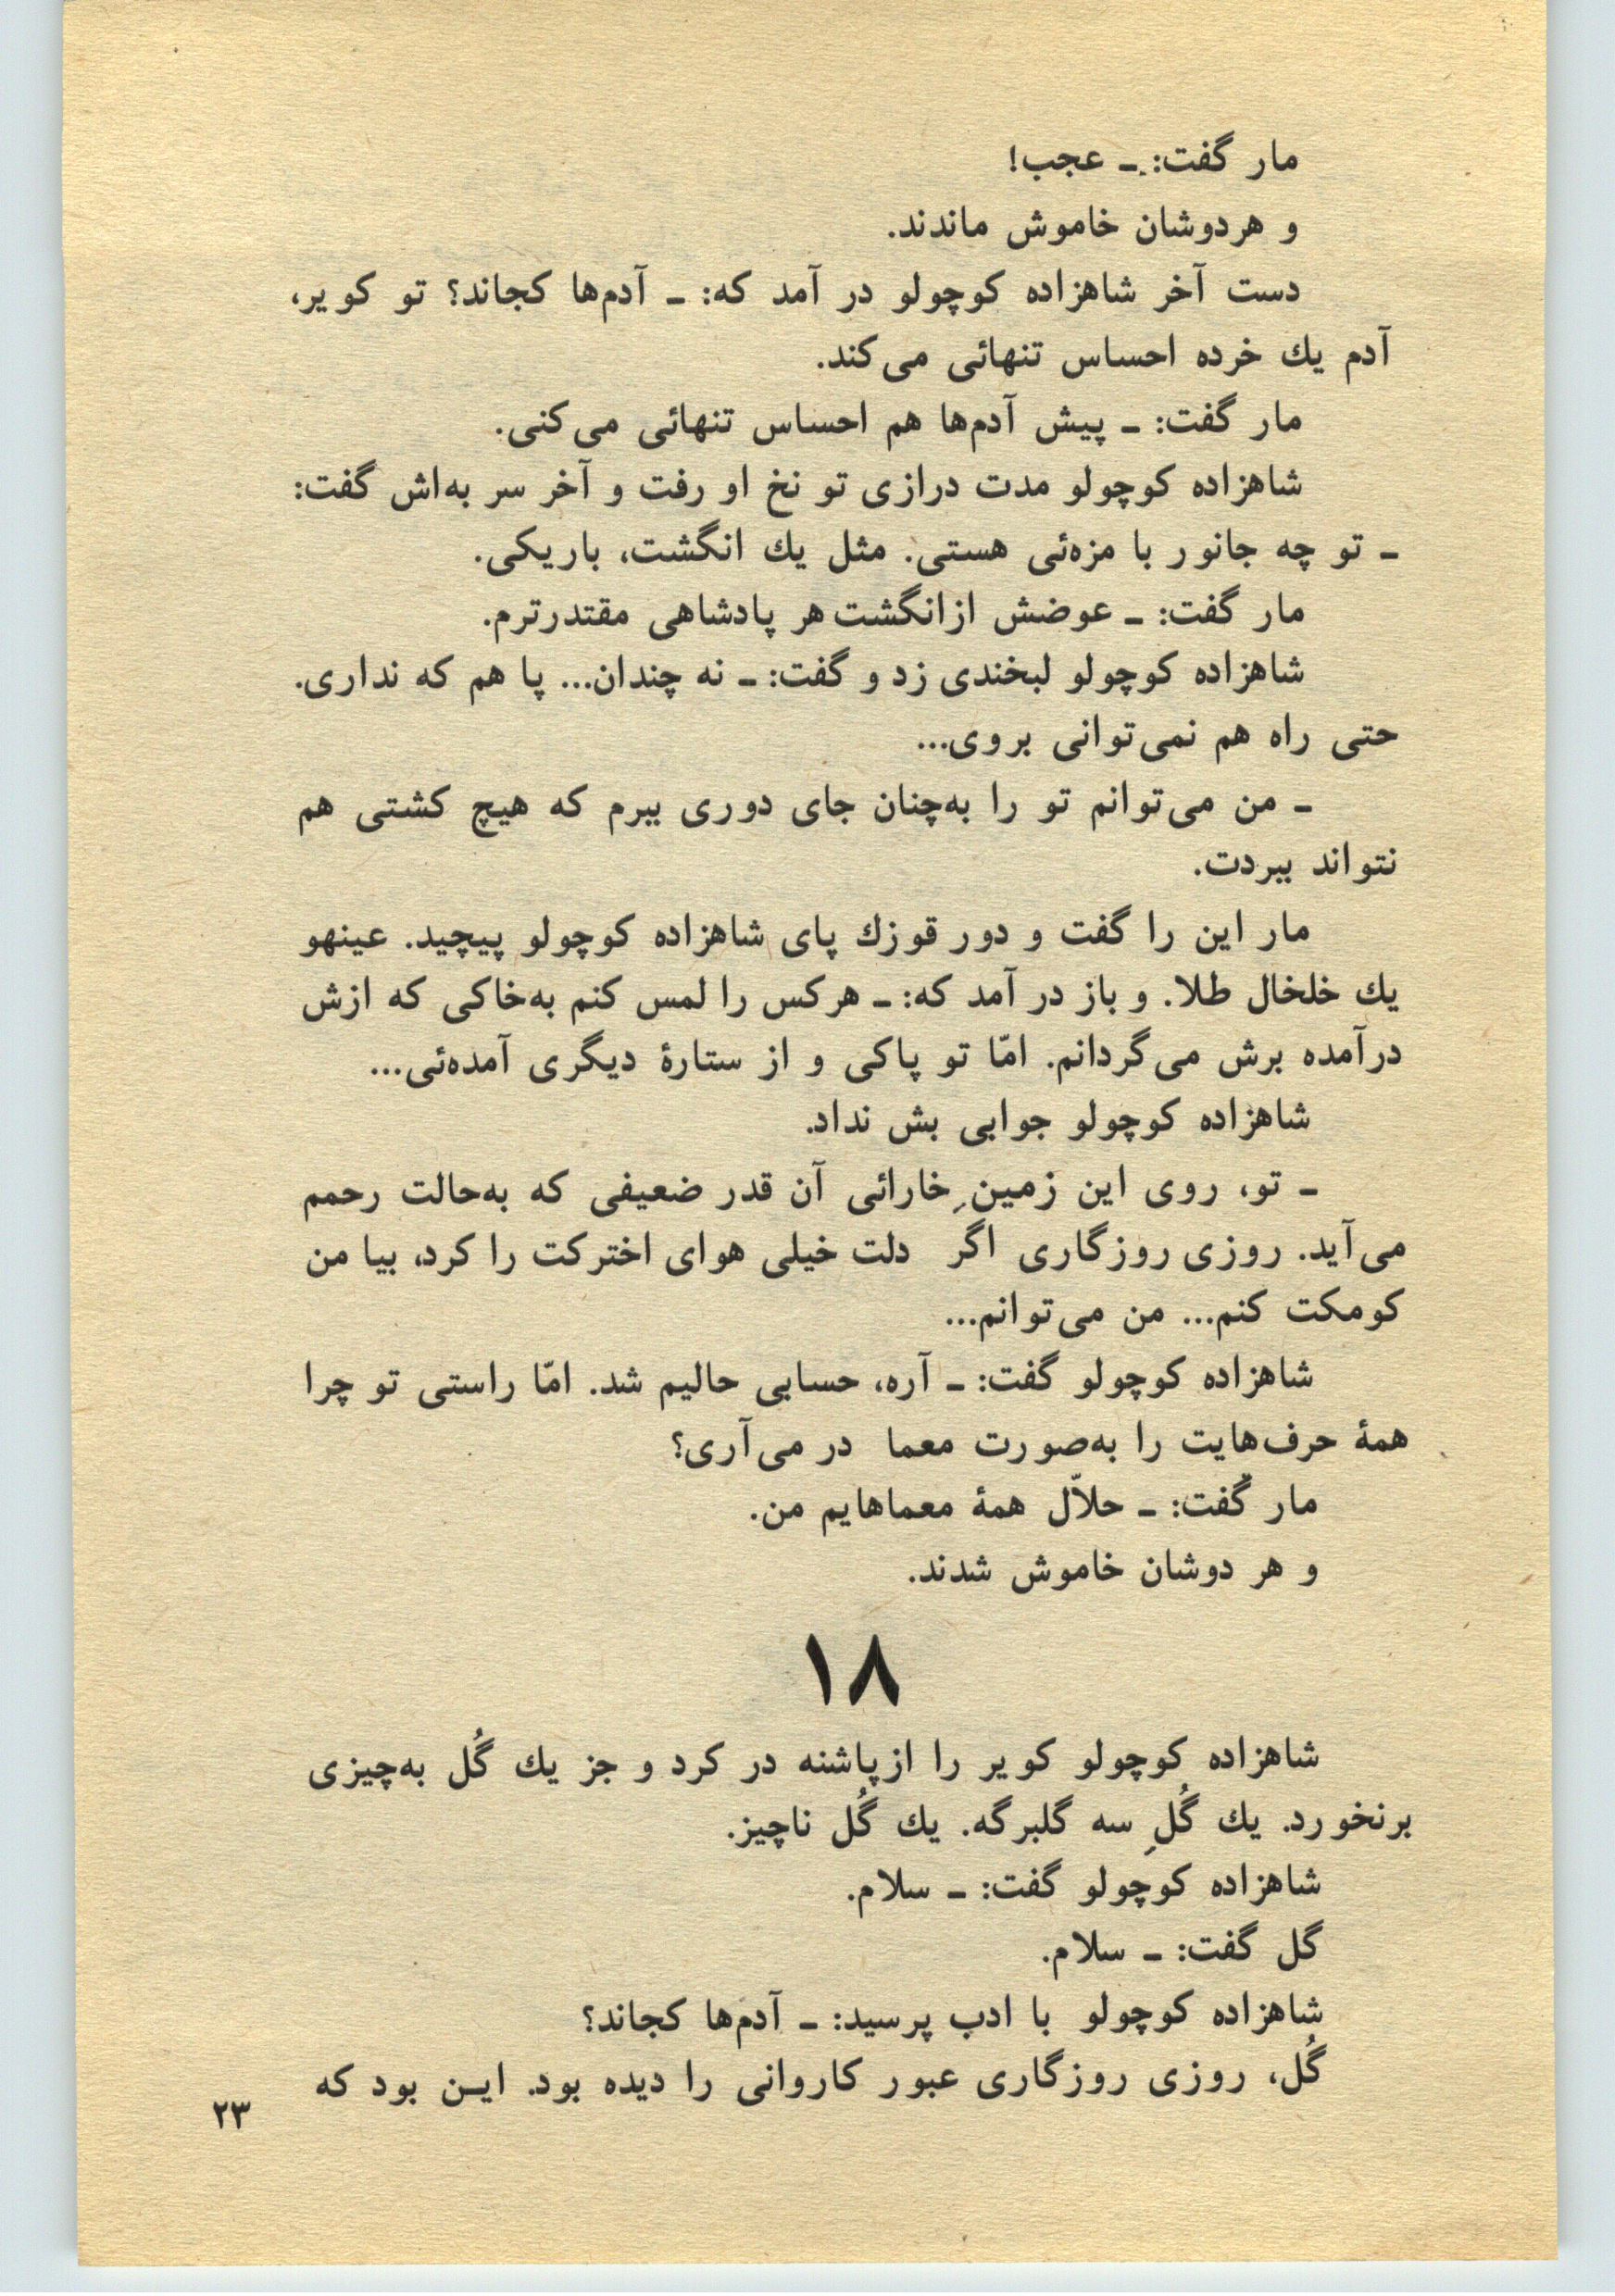 مار گفت: ـ عجب!
و هردوشان خاموش ماندند.
دست آخر شاهزاده کوچولو در آمد که: ـ آدم‌ها کجاند؟ تو کویر،
آدم یك خرده احساس تنهائی می‌کند.
مار گفت: ـ پیش آدم‌ها هم احساس تنهائی می‌کنی.
شاهزاده کوچولو مدت درازی تو نخ او رفت و آخر سر به‌اش گفت:
ـ تو چه جانور با مزه‌ئی هستی. مثل یك انگشت، باریکی.
مار گفت: ـ عوضش ازانگشت هر پادشاهی مقتدرترم.
شاهزاده کوچولو لبخندی زد و گفت: ـ نه چندان... پا هم که نداری.
حتی راه هم نمی‌توانی بروی...
ـ من می‌توانم تو را به‌چنان جای دوری ببرم که هیچ کشتی هم
نتواند ببردت.
مار این را گفت و دور قوزك پای شاهزاده کوچولو پیچید. عینهو
یك خلخال طلا. و باز در آمد که: ـ هرکس را لمس کنم به‌خاکی که ازش
درآمده برش می‌گردانم. امّا تو پاکی و از ستارهٔ دیگری آمده‌ئی...
شاهزاده کوچولو جوابی بش نداد.
ـ تو، روی این زمینِ خارائی آن قدر ضعیفی که به‌حالت رحمم
می‌آید. روزی روزگاری اگر دلت خیلی هوای اخترکت را کرد، بیا من
کومکت کنم... من می‌توانم...
شاهزاده کوچولو گفت: ـ آره، حسابی حالیم شد. امّا راستی تو چرا
همهٔ حرف‌هایت را به‌صورت معما در می‌آری؟
مار گفت: ـ حلاّل همهٔ معماهایم من.
و هر دوشان خاموش شدند.
۱۸
شاهزاده کوچولو کویر را ازپاشنه در کرد و جز یك گُل به‌چیزی
برنخورد. یك گُلِ سه گلبرگه. یك گُل ناچیز.
شاهزاده کوچولو گفت: ـ سلام.
گل گفت: ـ سلام.
شاهزاده کوچولو با ادب پرسید: ـ آدم‌ها کجاند؟
گُل، روزی روزگاری عبور کاروانی را دیده بود. ایـن بود که
۲۳